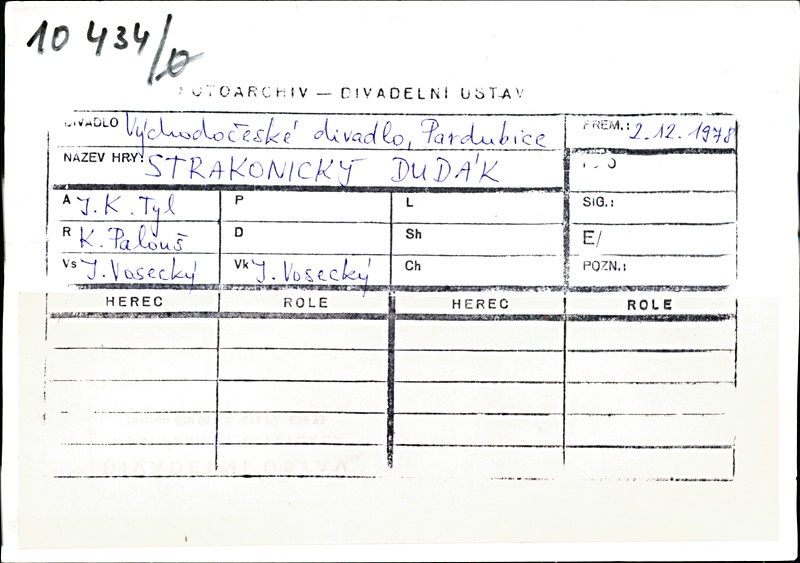 10 434/0
FOTOARCHIV — DIVADELNÍ ÚSTAV
DIVADLO Východočeské divadlo, Pardubice PREM.: 2.12.1978
NÁZEV HRY: STRAKONICKÝ DUDÁK
A J. K. Tyl P L SIG.:
R K. Palouš D Sh E/
Vs J. Vosecký Vk J. Vosecký Ch POZN.:
HEREC ROLE HEREC ROLE
DIVADELNÍ ÚSTAV